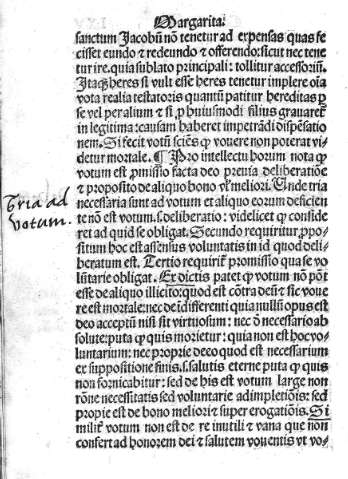 Margarita.
sanctum Jacobũ nõ tenetur ad expensas quas fe
cisset eundo & redeundo & offerendo: sicut nec tene
tur ire. quia sublato principali: tollitur accessoriũ.
Itaqȝ heres si vult esse heres tenetur implere oĩa
vota realia testatoris quantũ patitur hereditas ꝑ
se vel per alium & si ꝓ huiusmodi filius grauaret᷑
in legitima: causam haberet impetrãdi dispẽsatio
nem. Si fecit votũ sciẽs ꝙ vouere non poterat vi
detur mortale. ¶ Pro intellectu horum nota ꝙ
votum est ꝓmissio facta deo preuia deliberatiõe
& proposito de aliquo bono vꝉ meliori. Unde tria
necessaria sunt ad votum et aliquo eorum deficien
te nõ est votum. s. deliberatio: videlicet ꝙ conside
ret ad quid se obligat. Secundo requiritur, ꝓpo-
situm hoc est assensus voluntatis in id quod deli-
beratum est. Tertio requirit᷑ promissio qua se vo
lũtarie obligat. Ex dictis patet ꝙ votum nõ põt
esse de aliquo illicito: quod est cõtra deũ & sic voue
re est mortale: nec de ĩdifferenti quia nullũ opus est
deo acceptũ nisi sit virtuosum: nec õ necessario ab
solute: puta ꝙ quis morietur: quia non est hoc vo-
luntarium: nec proprie de eo quod est necessarium
ex suppositione finis. s. salutis eterne puta ꝙ quis
non fornicabitur: sed de his est votum large non
rõne necessitatis sed voluntarie adimpletiõis: sed
propie est de bono meliori & super erogatiõis. Si
milit᷑ votum non est de re inutili & vana que non
confert ad honorem dei & salutem vouentis vt vo-
Tria ad
votum.